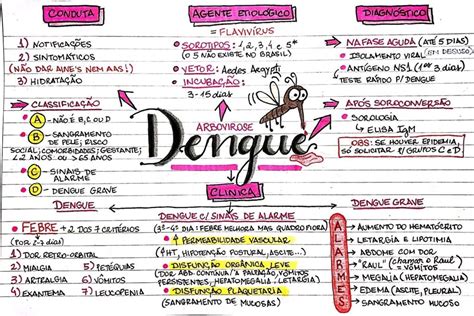 CONDUTA
1) NOTIFICAÇÕES
2) SINTOMÁTICOS
(NÃO DAR AINE'S NEM AAS!)
3) HIDRATAÇÃO
→ CLASSIFICAÇÃO
A - NÃO É B, C OU D
B - SANGRAMENTO
DE PELE; RISCO
SOCIAL; COMORBIDADES; GESTANTE;
<2 ANOS OU >65 ANOS
C - SINAIS DE
ALARME
D - DENGUE GRAVE
AGENTE ETIOLÓGICO
= FLAVIVÍRUS
• SOROTIPOS: 1, 2, 3, 4 e 5*
(O 5 NÃO EXISTE NO BRASIL)
• VETOR: Aedes Aegypti
• INCUBAÇÃO:
3-15 dias
ARBOVIROSE
Dengue
DIAGNÓSTICO
→ NA FASE AGUDA (ATÉ 5 DIAS)
• ISOLAMENTO VIRAL (EM DESUSO)
• ANTÍGENO NS1 (ATÉ O 3º DIA)
TESTE RÁPIDO P/ DENGUE
→ APÓS SOROCONVERSÃO
• SOROLOGIA
↳ ELISA IgM
OBS: SE HOUVER EPIDEMIA,
SÓ SOLICITAR P/ GRUPOS C e D.
CLÍNICA
DENGUE
FEBRE + 2 DOS 7 CRITÉRIOS
(POR 2-7 dias)
1) DOR RETRO-ORBITAL
2) MIALGIA
3) ARTRALGIA
4) EXANTEMA
5) PETÉQUIAS
6) VÔMITOS
7) LEUCOPENIA
DENGUE C/ SINAIS DE ALARME
(3º-4º DIA FEBRE MELHORA MAS QUADRO PIORA)
↑ PERMEABILIDADE VASCULAR
(↑HT, HIPOTENÇÃO POSTURAL, ASCITE...)
DISFUNÇÃO ORGÂNICA LEVE
(DOR ABD. CONTÍNUA / À PALPAÇÃO, VÔMITOS
PERSISTENTES, HEPATOMEGALIA, LETARGIA)
DISFUNÇÃO PLAQUETÁRIA
(SANGRAMENTO DE MUCOSAS)
DENGUE GRAVE
ALARMES
→ AUMENTO DO HEMATÓCRITO
→ LETARGIA E LIPOTIMIA
→ ABDOME COM DOR
→ "RAUL" (chamar o Raul)
= VÔMITOS
→ MEGALIA (HEPATOMEGALIA)
→ EDEMA (ASCITE, PLEURAL)
→ SANGRAMENTO MUCOSO